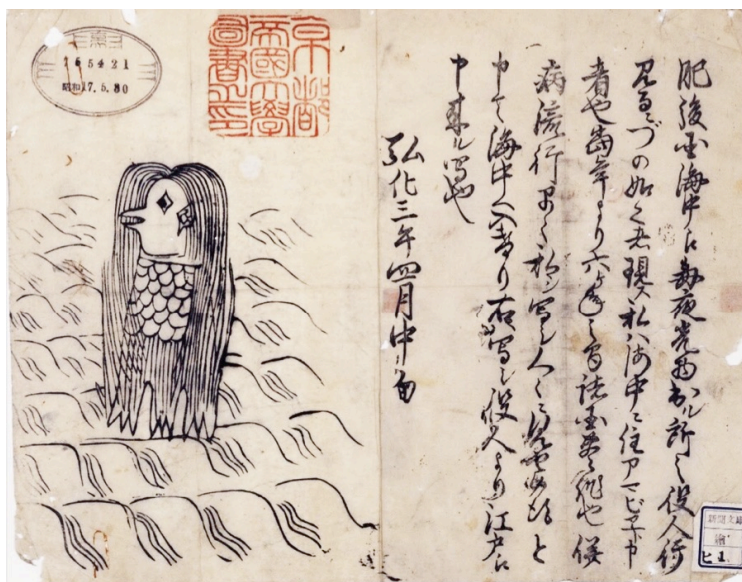 肥後国海中江毎夜光物出ル所之役人行
見るニづの如く者現ス私ハ海中ニ住アマビヱト申
者也当年より六ヶ年之間諸国豊作也併
病流行早々私ヲ写シ人々ニ見せ候得と
申て海中へ入けり右写シ役人より江戸江
申来ル写也
弘化三年四月中旬
京都
帝國大學
圖書之印
昭和17.5.30
新聞文庫
繪
ヒ1